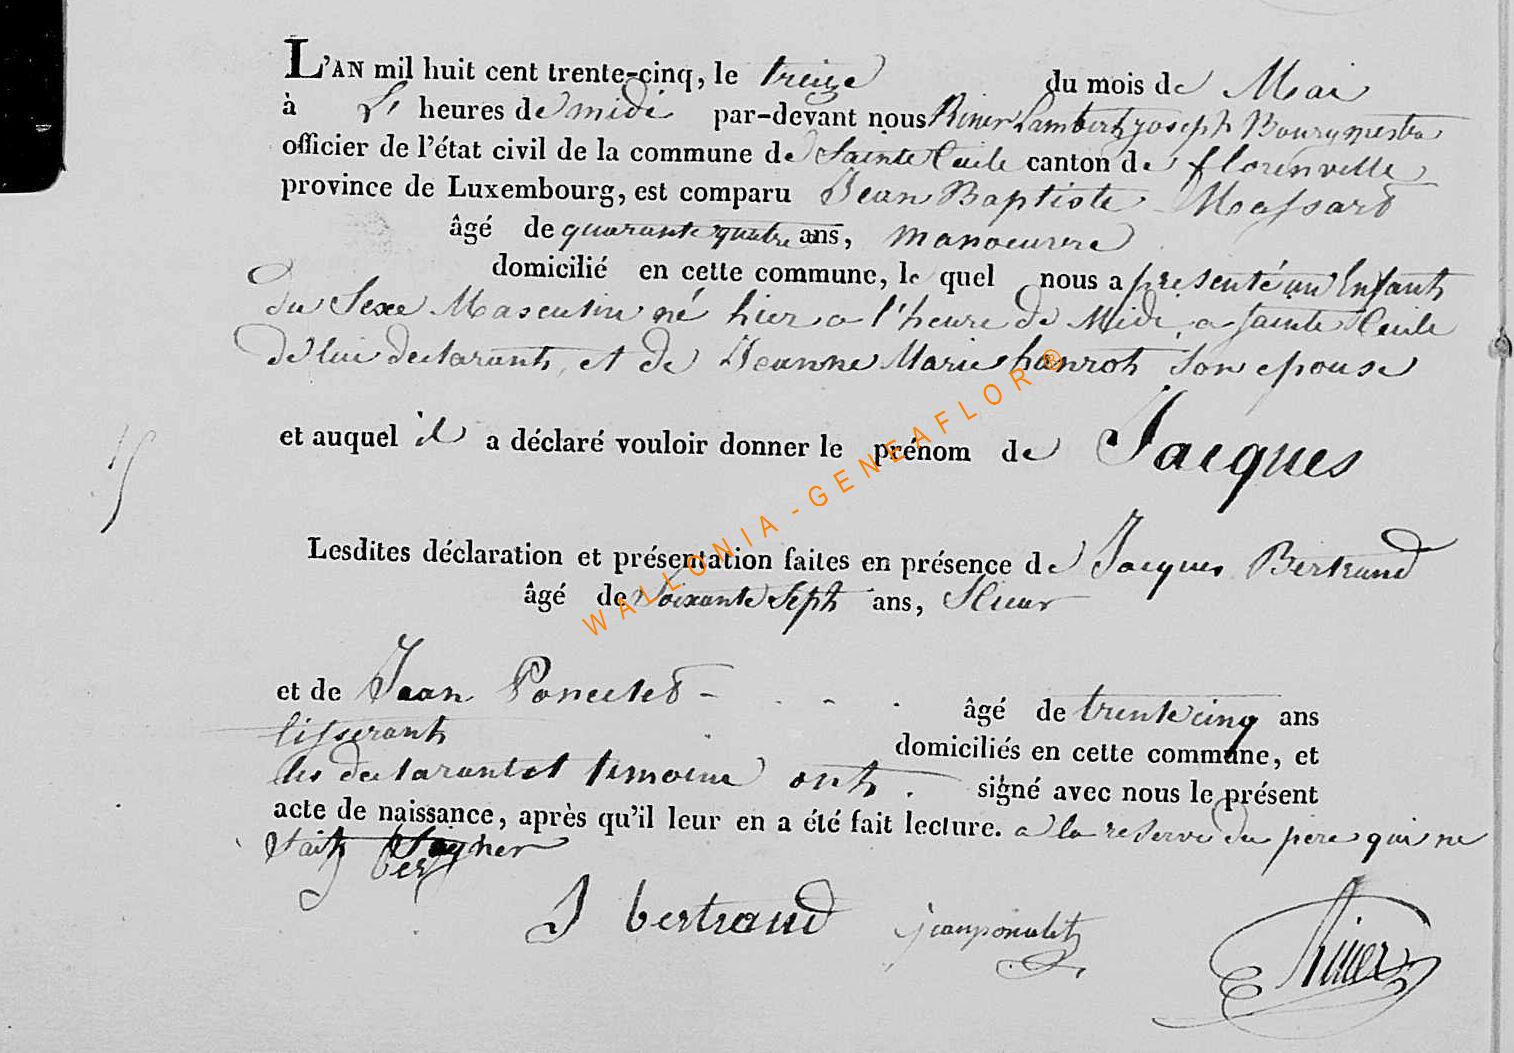 L'AN mil huit cent trente-cinq, le treize du mois de Mai
à heures de midi par-devant nous Riner Lambert joseph Bourgmestre
officier de l'état civil de la commune de Sainte Cecile canton de florenville
province de Luxembourg, est comparu Jean Baptiste Massard
âgé de quarante quatre ans, manoeuvre
domicilié en cette commune, le quel nous a presenté un Enfant
du Sexe Masculin né hier a l'heure de Midi a Sainte Cecile
de lui declarant, et de Jeanne Marie hanrot Son epouse
et auquel il a déclaré vouloir donner le prénom de Jacques
Lesdites déclaration et présentation faites en présence de Jacques Bertrand
âgé de Soixante Sept ans,
et de Jean Poncelet - - - âgé de trente cinq ans
tisserant domiciliés en cette commune, et
les declarant et temoins ont signé avec nous le présent
acte de naissance, après qu'il leur en a été fait lecture. a la reserve du pere qui ne
Sait Signer
J bertrand jean poncelet Riner
WALLONIA - GENEAFLOR®